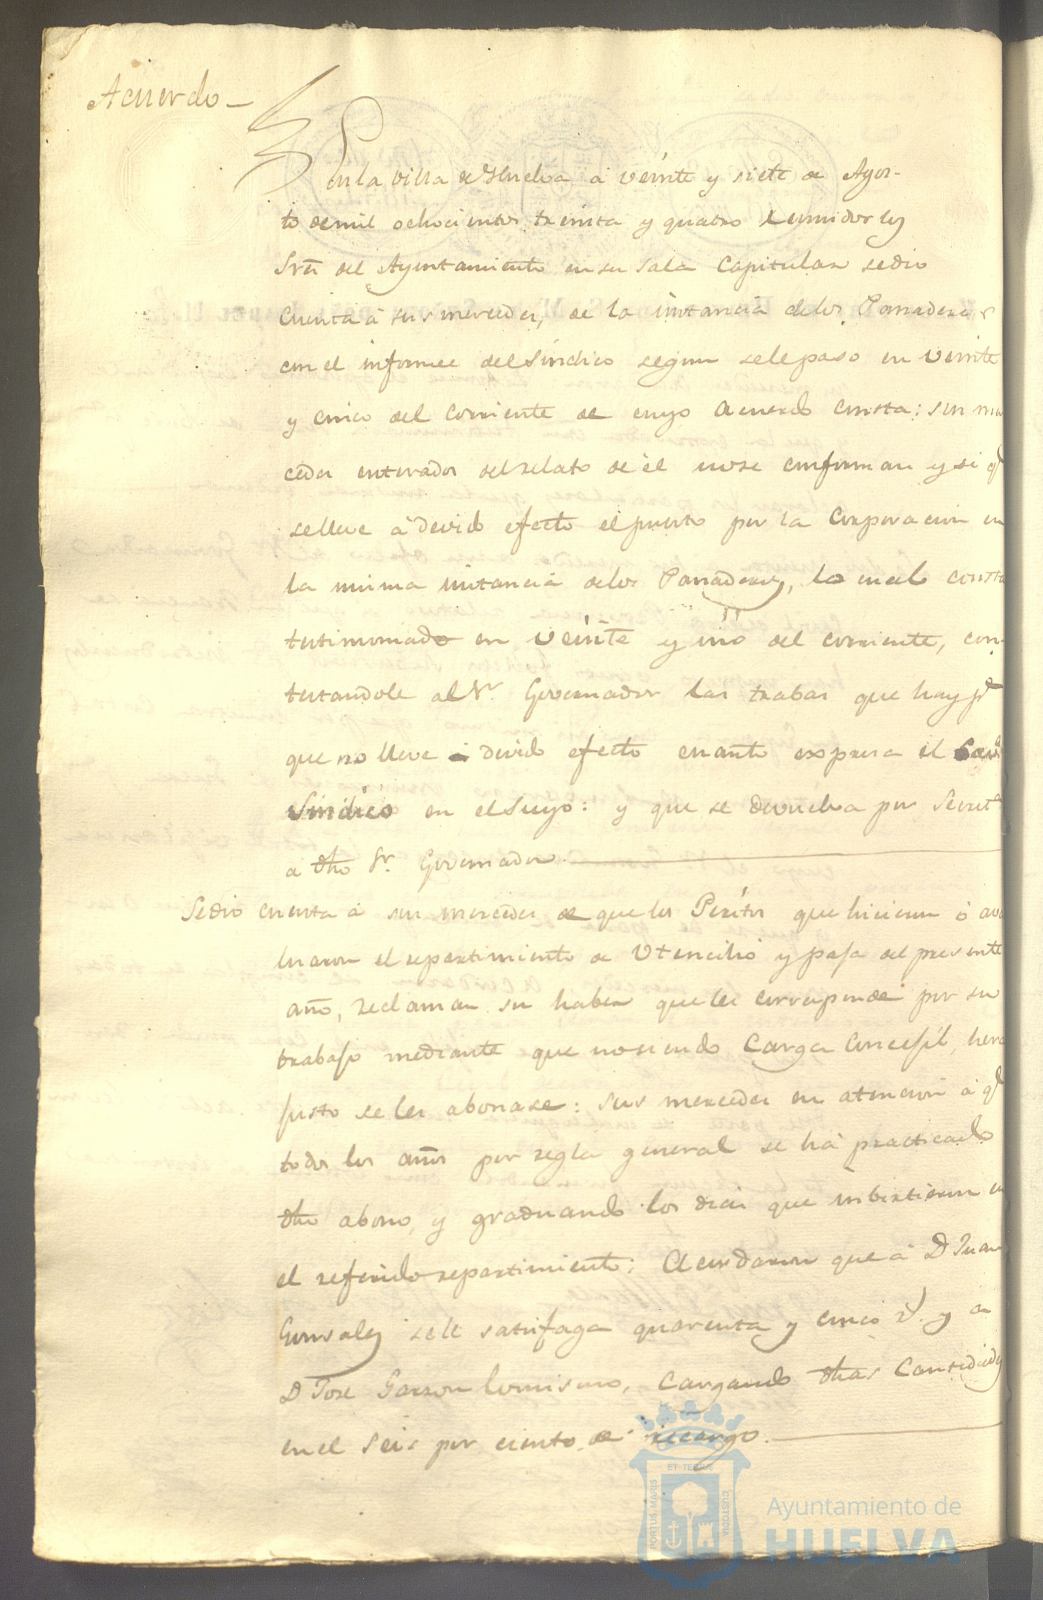 Acuerdo
En la villa de Huelva á veinte y siete de Agos-
to de mil ochocientos treinta y quatro reunidos los
Sres del Ayuntamiento en su sala Capitular se dio
cuenta á sus mercedes, de la instancia de los Panaderos
con el informe del Sindico segun se le paso en veinte
y cinco del corriente de cuyo acuerdo consta: sus mer
cedes enterados del relato de él no se conforman y si qe
se lleve á devido efecto el puesto por la corporacion en
la misma instancia de los Panaderos, lo cual consta
testimoniado en veinte y uno del corriente, con-
testandole al Sr Governador las trabas que hay pa
que no lleve á devido efecto cuanto expresa el
Sindico en el suyo: y que se devuelva por Secreta
a dho Sr. Governador.
Se dio cuenta á sus mercedes de que los Peritos que hicieron ó ava
luaron el repartimiento de Utencilio y paja del presente
año, reclaman su haber que les corresponde por su
trabajo mediante que no siendo Carga Concejil, hera
justo se les abonase: sus mercedes en atencion á qe
todos los años por regla general se ha practicado
dho abono, y graduando los dias que imbirtieron en
el referido repartimiento; Acordaron que á Dn Juan
Gonsales se le satisfaga quarenta y cinco rs. y a
Dn Jose Garzon lo mismo, cargando dhas cantidades
en el seis por ciento de recargo.
PORTUS MARIS
ET TERRAE
CUSTODIA
Ayuntamiento de
HUELVA